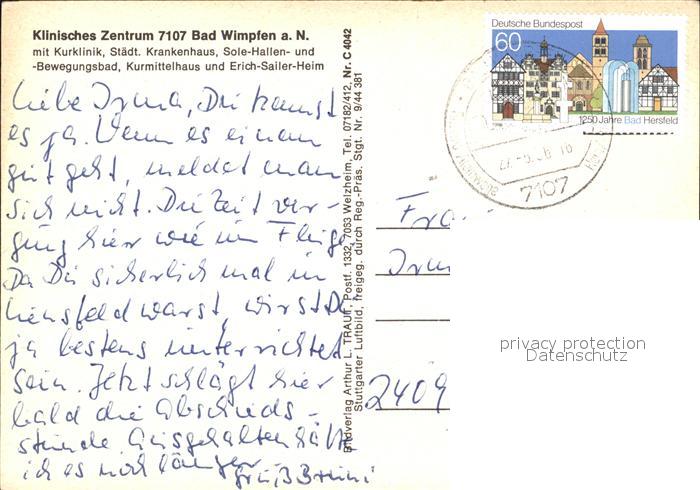 Klinisches Zentrum 7107 Bad Wimpfen a. N.
mit Kurklinik, Städt. Krankenhaus, Sole-Hallen- und
-Bewegungsbad, Kurmittelhaus und Erich-Sailer-Heim
Liebe Irma, Du kennst
es ja. Wenn es einem
gut geht, meldet man
sich nicht. Die Zeit ver-
ging hier wie im Fluge
Da Du sicherlich mal in
warst, wirst Du
ja bestens unterrichtet
sein. Jetzt schlägt hier
bald die Abschieds-
stunde. Ausgehalten hätt
ich es noch länger.
Gruß
Bildverlag Arthur L. TRAUT, Postf. 1332, 7063 Welzheim, Tel. 07182/412, Nr. C 4042
Stuttgarter Luftbild, freigeg. durch Reg.-Präs. Stgt. Nr. 9/44 381
Deutsche Bundespost
60
1250 Jahre Bad Hersfeld
7107
Fra
Irm
2409
privacy protection
Datenschutz